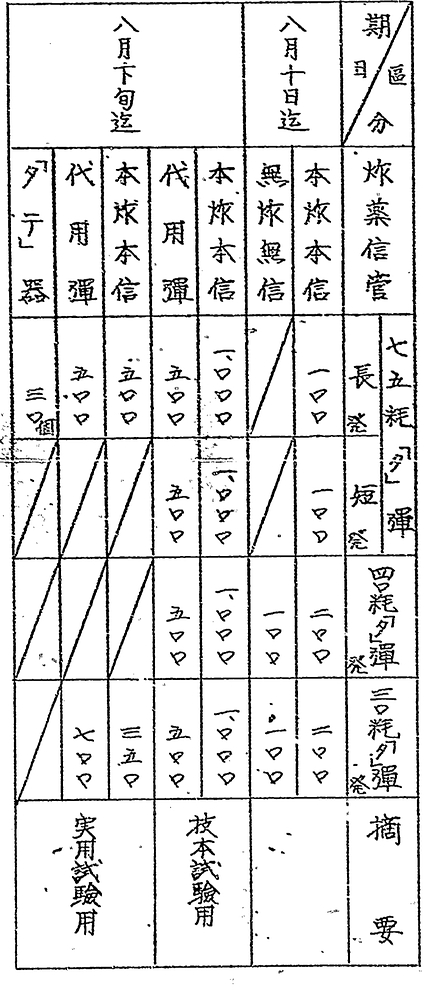 期日
區分
炸薬信管
七五粍「タ」彈
長 発
短 発
四〇粍「タ」彈 発
三〇粍「タ」彈 発
摘要
八月十日迄
本炸本信
一〇〇
一〇〇
二〇〇
二〇〇
無炸無信
一〇〇
一〇〇
八月下旬迄
本炸本信
一、〇〇〇
一、〇〇〇
一、〇〇〇
一、〇〇〇
代用彈
五〇〇
五〇〇
五〇〇
五〇〇
技本試驗用
本炸本信
五〇〇
三五〇
代用彈
五〇〇
七〇〇
「タテ」器
三〇個
実用試驗用